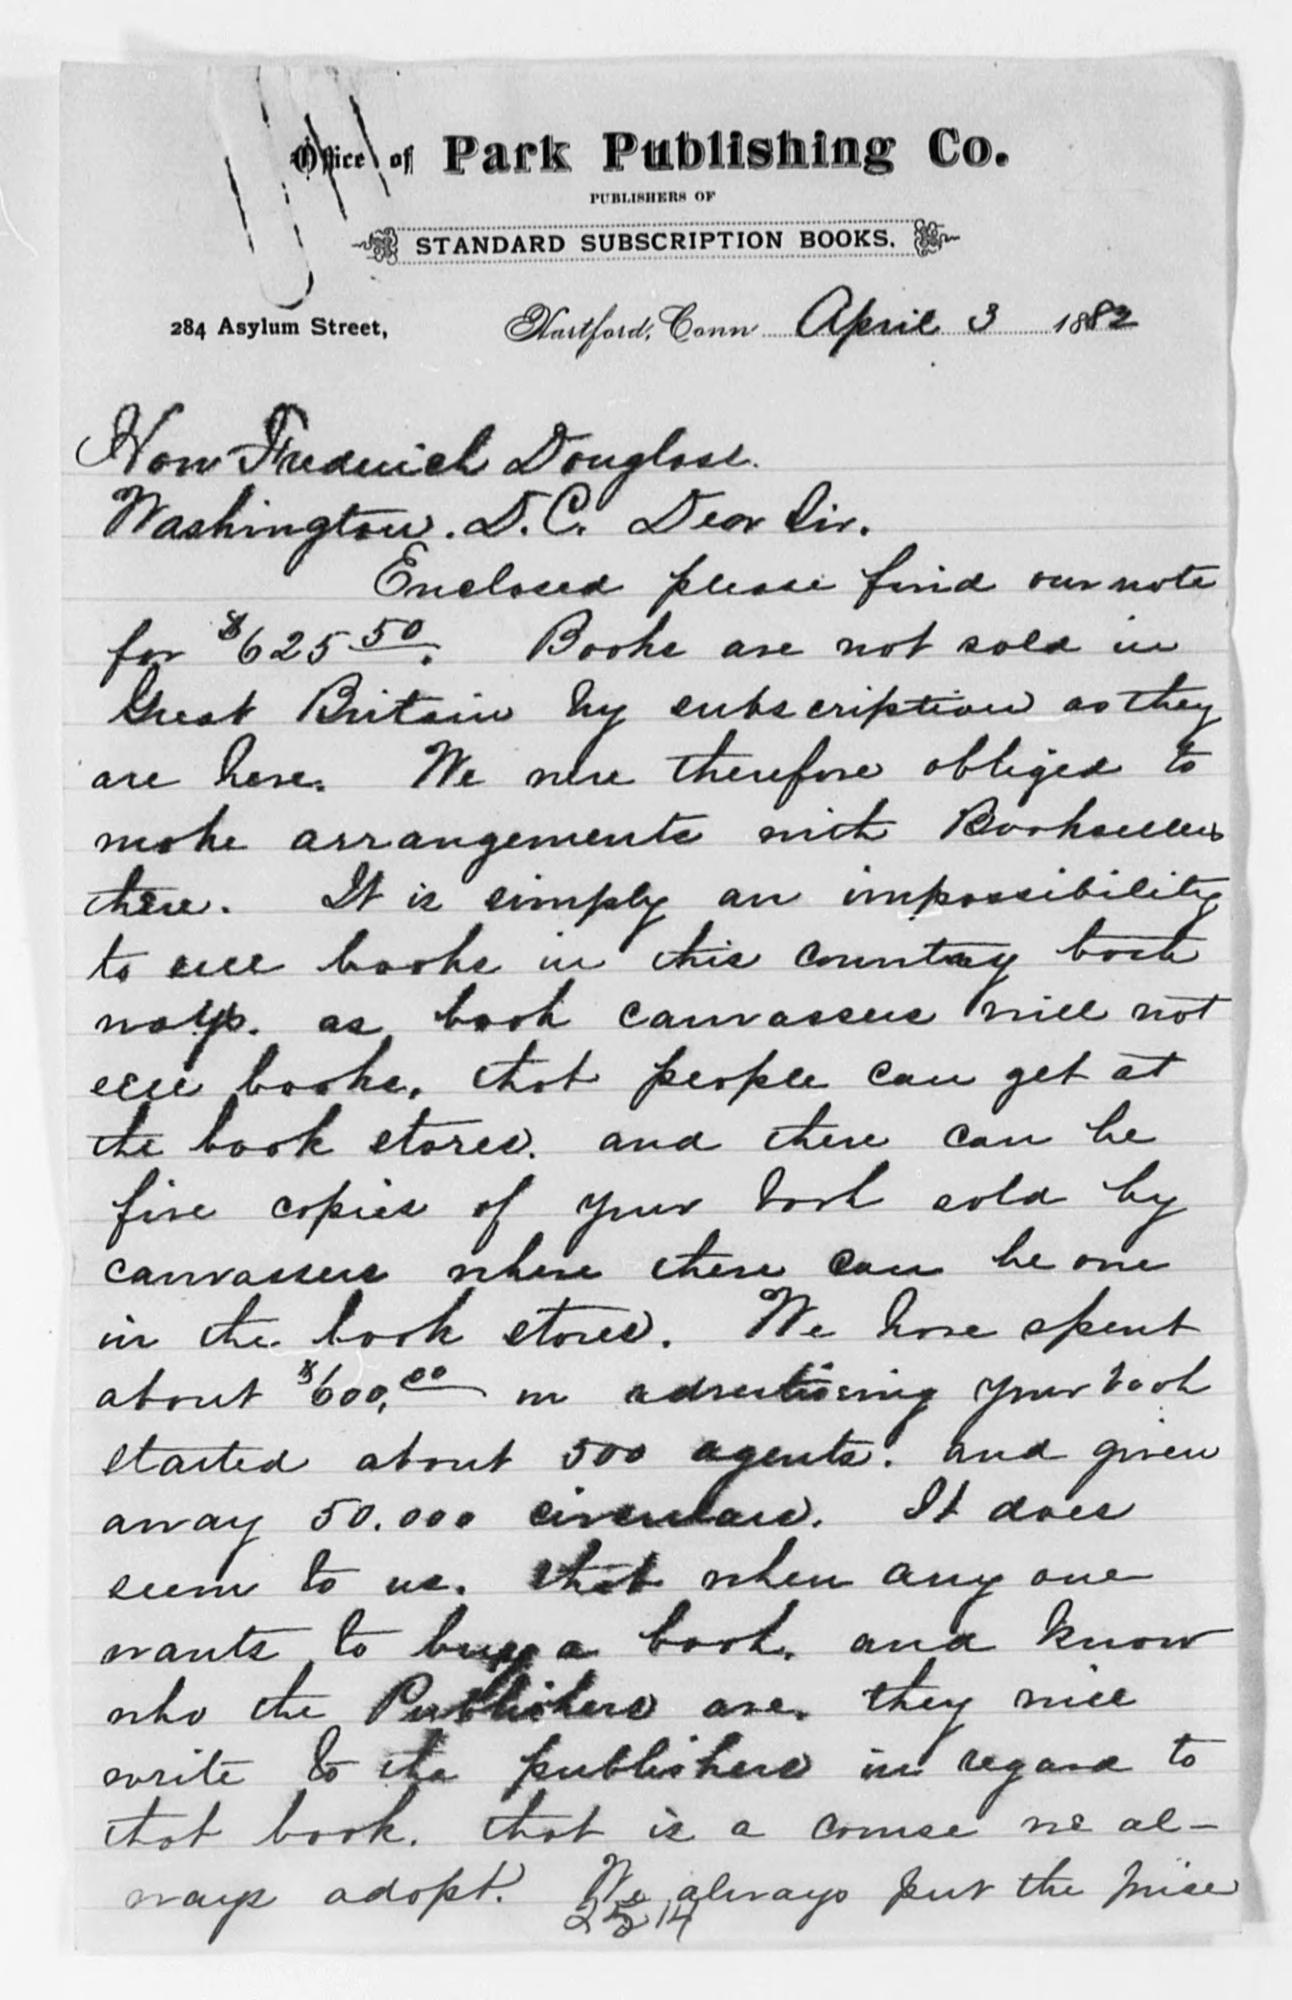 Office of Park Publishing Co.
PUBLISHERS OF
STANDARD SUBSCRIPTION BOOKS.
284 Asylum Street, Hartford, Conn April 3 1882
Hon Frederick Douglass.
Washington. D.C. Dear Sir.
Enclosed please find our note
for $625 50. Books are not sold in
Great Britain by subscription as they
are here. We were therefore obliged to
make arrangements with Booksellers
there. It is simply an impossibility
to sell books in this country both
ways. as book canvassers will not
sell books, that people can get at
the book stores. and there can be
five copies of your book sold by
canvassers where there can be one
in the book stores. We have spent
about $600,00 in advertising your book
started about 500 agents. and given
away 50.000 circulars. It does
seem to us. that when any one
wants to buy a book, and know
who the Publishers are. they will
write to the publishers in regard to
that book. that is a course we al-
ways adopt. We always put the price
2514